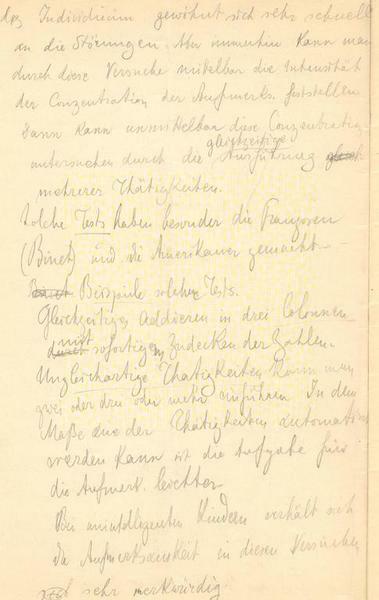 das Individuum gewöhnt sich sehr schnell
an die Störungen. Aber immerhin kann man
durch diese Versuche mittelbar die Intensität
der Conzentration der Aufmerks. feststellen
Dann kann unmittelbar diese Conzentration
gleichzeitige
untersuchen durch die Ausführung gleich
mehrerer Thätigkeiten.
Solche Tests haben besonder die Franzosen
(Binet) und die Amerikaner gemacht
Binet Beispiele solcher Tests.
Gleichzeitiges Addieren in drei Colonnen
mit
durch sofortigem Zudecken der Zahlen.
Ungleichartige Thätigkeiten kann man
zwei oder drei oder mehr einführen. In dem
Maße die der Thätigkeiten automatisch
werden kann ist die Aufgabe für
die Aufmerk. leichter
Bei unintelligenten Kindern verhält sich
die Aufmerksamkeit in diesen Versuchen
sehr merkwürdig.